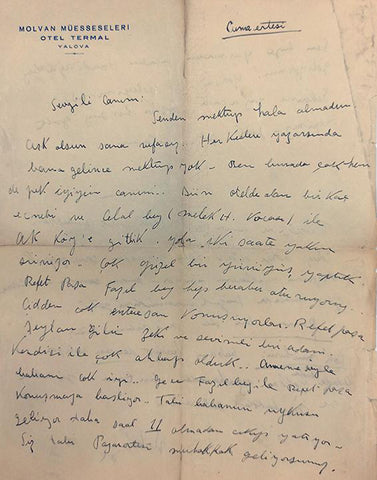 MOLVAN MÜESSESELERİ
OTEL TERMAL
YALOVA
Cumaertesi
Sevgili Canım:
Senden mektup hala almadım.
Aşk olsun sana Herkese yazarsında
bana gelince mektup yok - Ben burada çok hem
de pek eyiyim canım.. Dün otelde olan bir kaç
ecnebi ve Celal bey (Melek H. Kocası) ile
Ak köy'e gittik. yola iki saate yakın
sürüyor. Çok güzel bir yürüyüş yaptık
Refet Paşa Fazıl bey hep beraber oturuyoruz.
Cidden çok enteresan Konuşuyorlar. Refet paşa
Şeytan gibi zeki ve sevimli bir adam.
Kendisi ile çok ahbap olduk.. Annemle
babam çok iyi.. Gece Fazıl bey ile Refet paşa
Konuşmaya başlıyor. Tabi babamın uykusu
geliyor daha saat 11 olmadan çıkıp yatıyor -
Siz Pazartesi muhakkak geliyorsunuz.